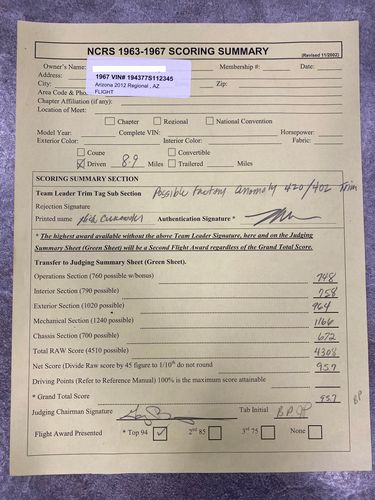 NCRS 1963-1967 SCORING SUMMARY (Revised 11/2002)
Owner's Name: Membership #: Date:
Address: 1967 VIN# 194377S112345
City: Arizona 2012 Regional , AZ Zip:
Area Code & Pho FLIGHT
Chapter Affiliation (if any):
Location of Meet:
Chapter Regional National Convention
Model Year: Complete VIN: Horsepower:
Exterior Color: Interior Color: Fabric:
Coupe Convertible
Driven 8.9 Miles Trailered Miles
SCORING SUMMARY SECTION
Team Leader Trim Tag Sub Section Possible Factory anomoly 420/402 Trim
Rejection Signature
Printed name Authentication Signature *
* The highest award available without the above Team Leader Signature, here and on the Judging
Summary Sheet (Green Sheet) will be a Second Flight Award regardless of the Grand Total Score.
Transfer to Judging Summary Sheet (Green Sheet).
Operations Section (760 possible w/bonus) 748
Interior Section (790 possible) 758
Exterior Section (1020 possible) 964
Mechanical Section (1240 possible) 1166
Chassis Section (700 possible) 672
Total RAW Score (4510 possible) 4308
Net Score (Divide Raw score by 45 figure to 1/10th do not round 95.7
Driving Points (Refer to Reference Manual) 100% is the maximum score attainable
* Grand Total Score 95.7 BP
Judging Chairman Signature Tab Initial BP JP
Flight Award Presented * Top 94 ✓ 2nd 85 3rd 75 None